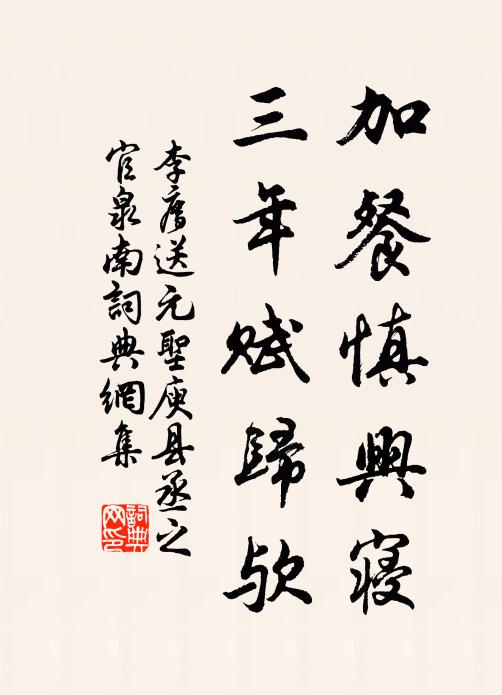 加餐慎興寢
三年賦歸欤
李廌送元聖庾县丞之
官泉南詞典網集
詞典
网印